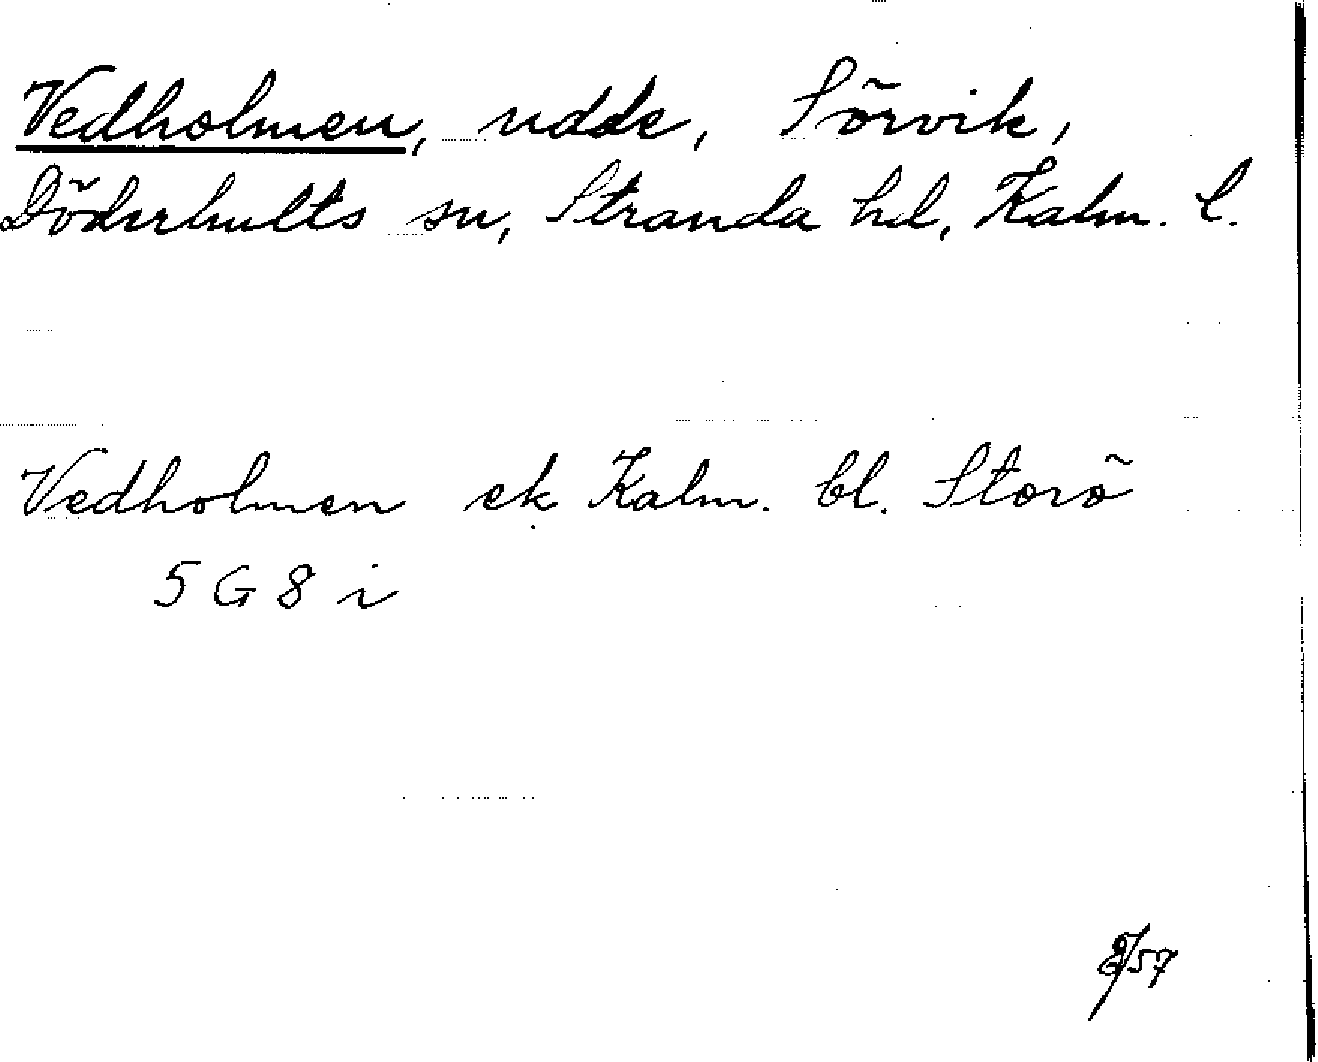 Vedholmen, udde, Sörvik,
Döderhults sn, Stranda hd, Kalm. l.
Vedholmen ek Kalm. bl. Storö
5 G 8 i
/57